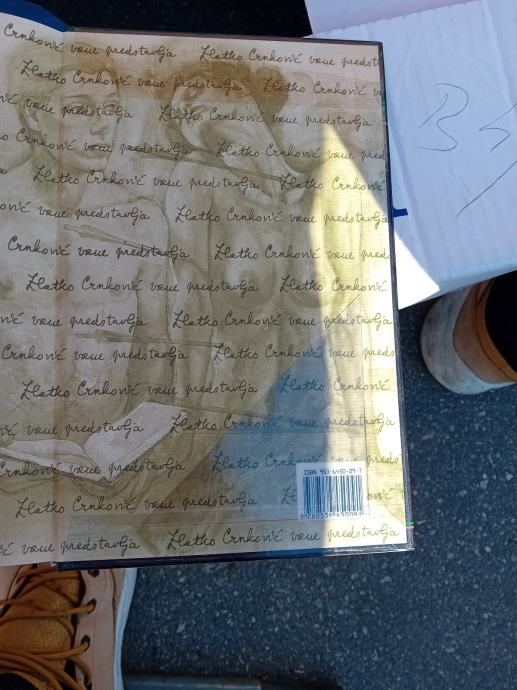 Crnković vam predstavlja Zlatko Crnković vam predst
Zlatko Crnković vam predstavlja Zlatko Crnković v
vam predstavlja Zlatko Crnković vam
Crnković vam predstavlja Zlatko Crnković vam pred
Zlatko Crnković vam predstavlja Zlatko Crnković
vam predstavlja Zlatko Crnković vam predst
Crnković vam predstavlja Zlatko Crnković vam preds
Zlatko Crnković vam predstavlja Zlatko Crnković
vam predstavlja Zlatko Crnković vam preds
Crnković vam predstavlja Zlatko Crnković vam preds
Zlatko Crnković vam predstavlja Zlatko Crnković
vam predstavlja Zlatko Crnković vam predstavlja
Crnković vam predstavlja Zlatko Crnković
ISBN 953-6450-09-7
Zlatko Crnković vam predstavlja
vam predstavlja Zlatko Crnković vam predstavlja